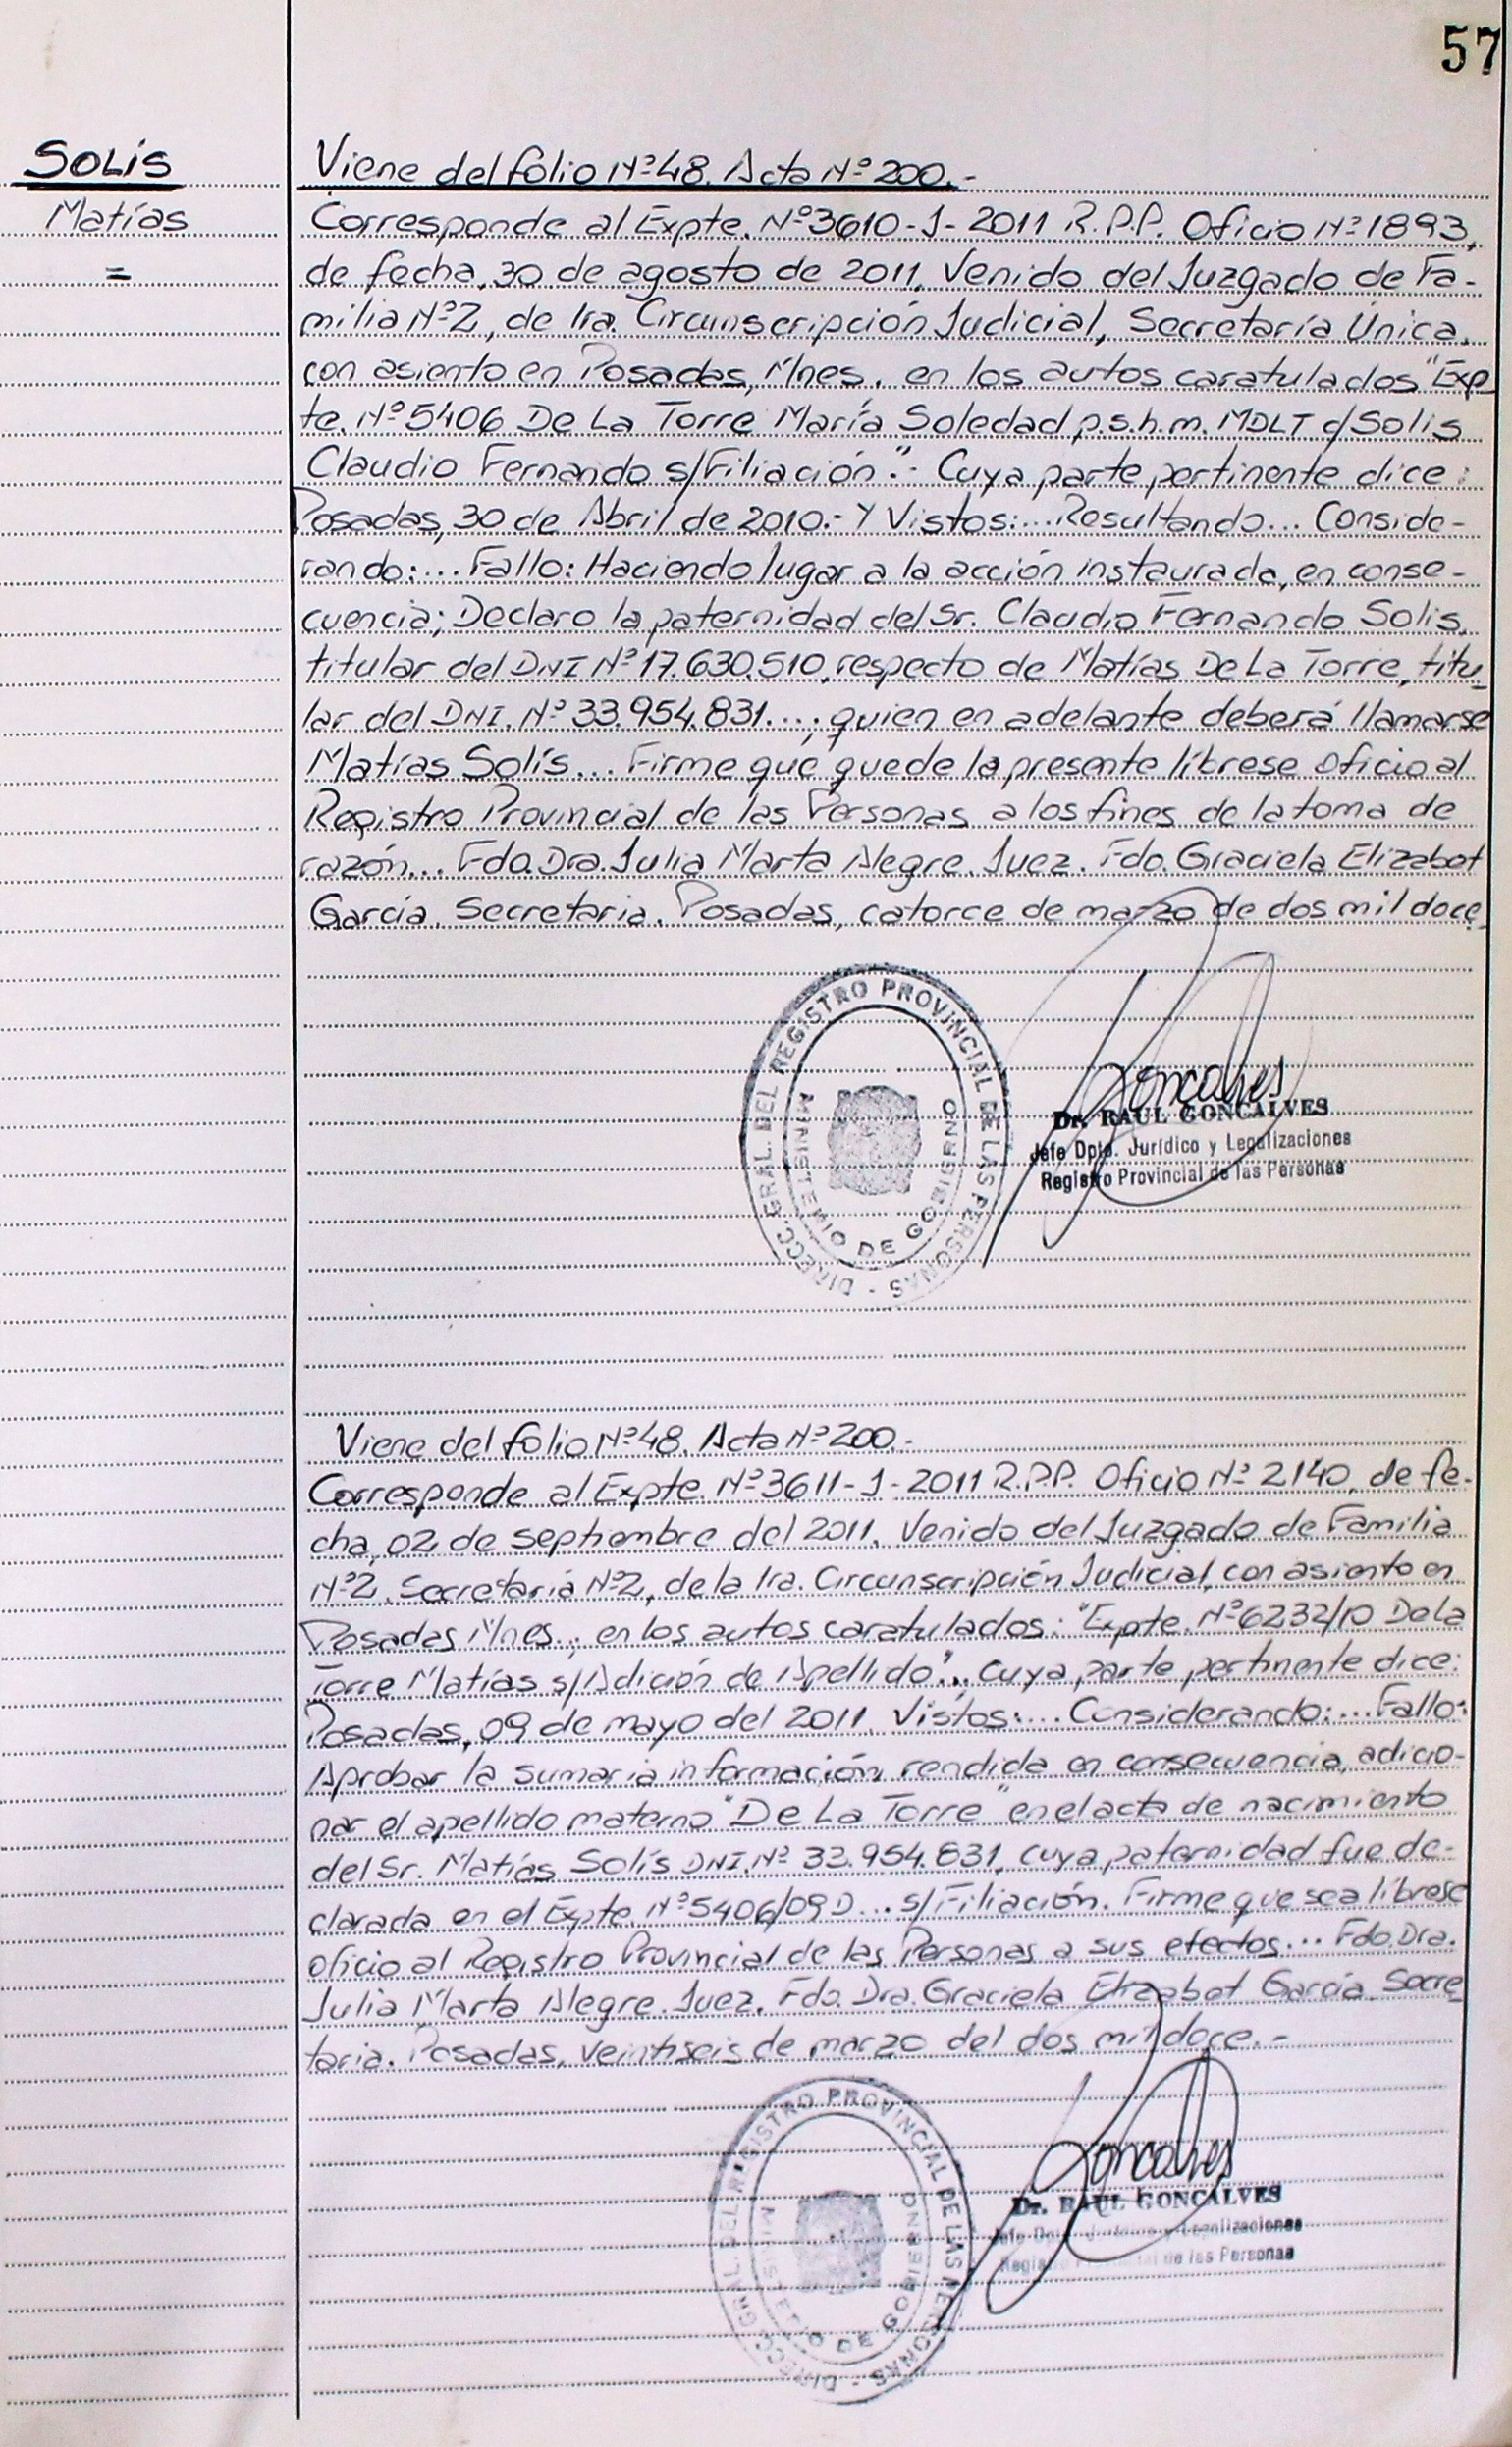 57
SOLÍS
Matías
=
Viene del folio Nº 48. Acta Nº 200.-
Corresponde al Expte. Nº 3610-J-2011 R.P.P. Oficio Nº 1893,
de fecha, 30 de agosto de 2011. Venido del Juzgado de Fa-
milia Nº 2, de 1ra. Circunscripción Judicial, Secretaría Única,
con asiento en Posadas, Mnes. en los autos caratulados "Exp
te. Nº 5406 De La Torre María Soledad p.s.h.m. MDLT c/ Solis
Claudio Fernando s/Filiación".- Cuya parte pertinente dice:
Posadas, 30 de Abril de 2010.- Y Vistos:... Resultando... Conside-
rando:... Fallo: Haciendo lugar a la acción instaurada, en conse-
cuencia; Declaro la paternidad del Sr. Claudio Fernando Solis,
titular del DNI Nº 17.630.510, respecto de Matías De La Torre, titu-
lar del DNI. Nº 33.954.831...; quien en adelante deberá llamarse
Matías Solís... Firme que quede la presente líbrese oficio al
Registro Provincial de las Personas a los fines de la toma de
razón... Fdo. Dra. Julia Marta Alegre. Juez. Fdo. Graciela Elizabet
García. Secretaria. Posadas, catorce de marzo de dos mil doce
DIRECC. GRAL. DEL REGISTRO PROVINCIAL DE LAS PERSONAS -
MINISTERIO DE GOBIERNO
Goncalves
Dr. RAUL GONCALVES
Jefe Dpto. Jurídico y Legalizaciones
Registro Provincial de las Personas
Viene del folio Nº 48. Acta Nº 200.-
Corresponde al Expte. Nº 3611-J-2011 R.P.P. Oficio Nº 2140, de fe-
cha, 02 de septiembre del 2011. Venido del Juzgado de Familia
Nº 2. Secretaría Nº 2, de la 1ra. Circunscripción Judicial, con asiento en
Posadas Mnes., en los autos caratulados: "Expte. Nº 6232/10 De La
Torre Matías s/Adición de Apellido"., Cuya parte pertinente dice:
Posadas, 09 de mayo del 2011. Vistos:... Considerando:... Fallo:
Aprobar la sumaria información rendida en consecuencia, adicio-
nar el apellido materno "De La Torre" en el acta de nacimiento
del Sr. Matías Solís DNI. Nº 33.954.831, cuya paternidad fue de-
clarada en el Expte. Nº 5406/09 D... s/Filiación. Firme que sea líbrese
oficio al Registro Provincial de las Personas a sus efectos... Fdo. Dra.
Julia Marta Alegre. Juez. Fdo. Dra. Graciela Elizabet García. Secre
taria. Posadas, veintiseis de marzo del dos mil doce.-
DIRECC. GRAL. DEL REGISTRO PROVINCIAL DE LAS PERSONAS -
MINISTERIO DE GOBIERNO
Goncalves
Dr. RAUL GONCALVES
Jefe Dpto. Jurídico y Legalizaciones
Registro Provincial de las Personas